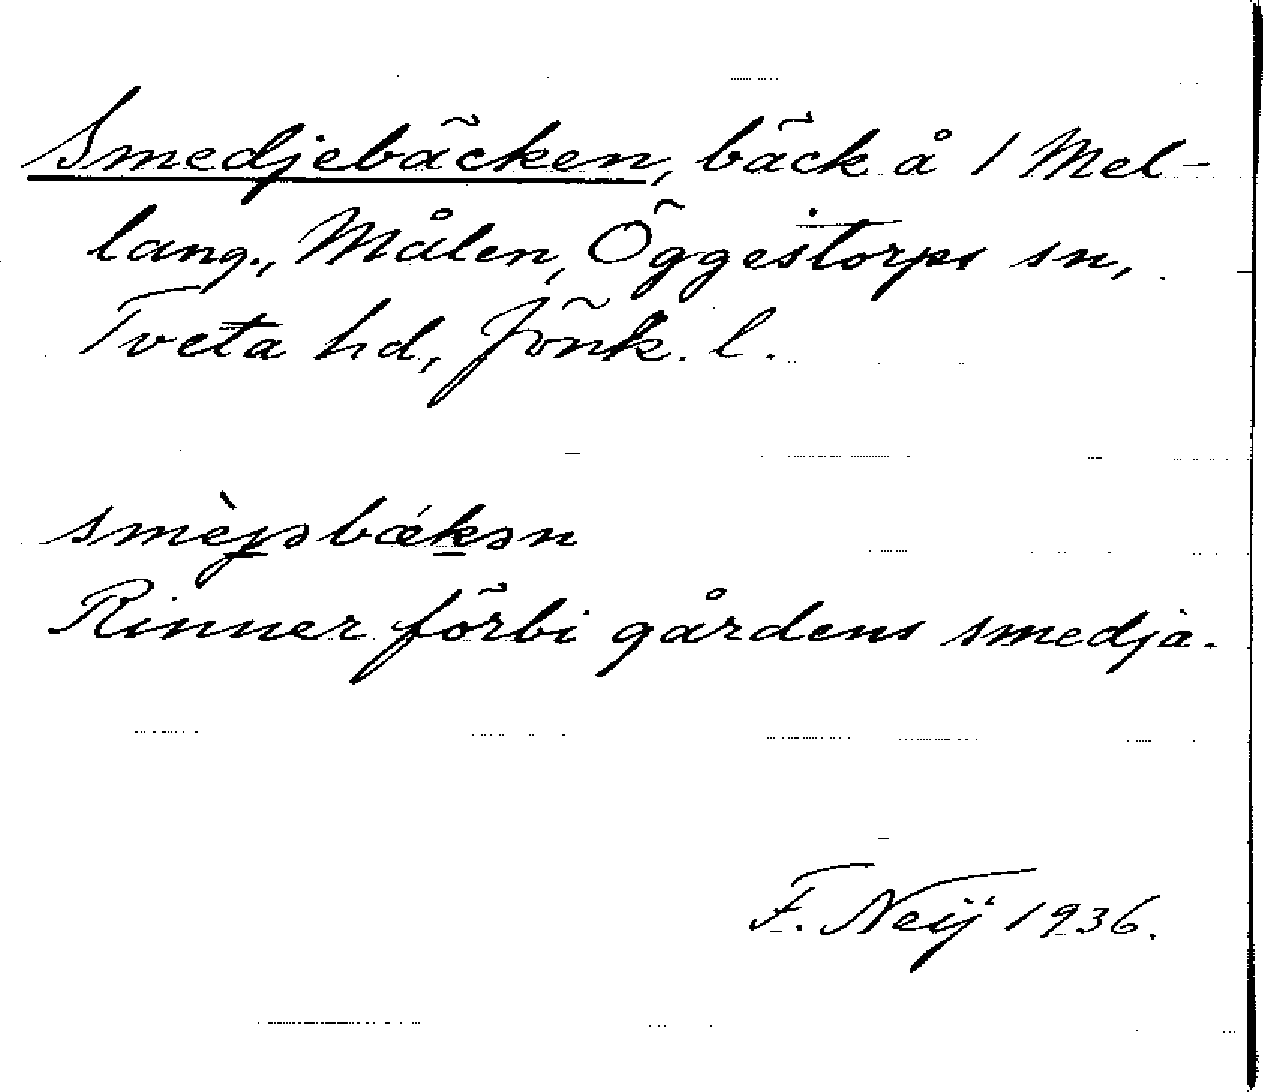 Smedjebäcken, bäck å 1 Mel-
lang., Målen, Öggestorps sn,
Tveta hd, Jönk. l.
smèjəbækən
Rinner förbi gårdens smedja.
F. Neij 1936.